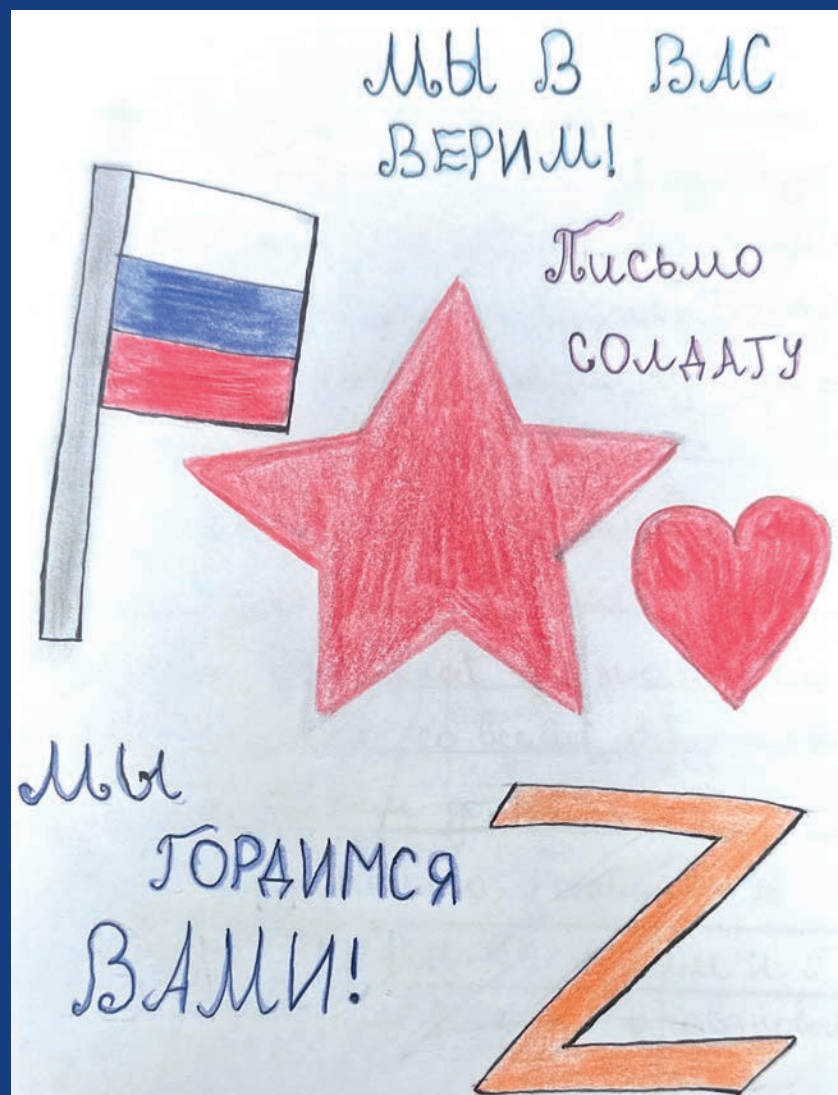 МЫ В ВАС
ВЕРИМ!
Письмо
СОЛДАТУ
МЫ
ГОРДИМСЯ
ВАМИ!
Z